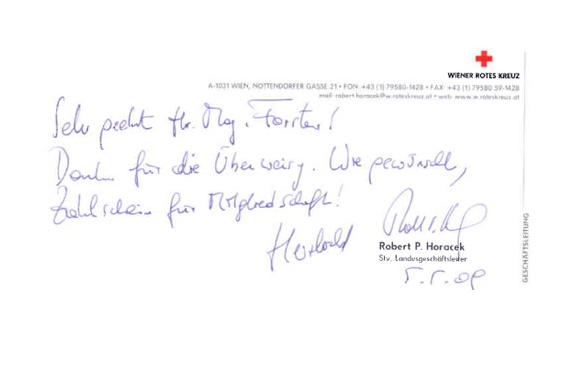 WIENER ROTES KREUZ
A-1031 WIEN, NOTTENDORFER GASSE 21 • FON: +43 (1) 79580-1428 • FAX: +43 (1) 79580 59-1428
mail: robert.horacek@w.roteskreuz.at • web: www.w.roteskreuz.at
Sehr geehrt Hr. Mag. Forster!
Danke für die Überweisg. Wie gewünscht,
Zahlschein für Mitgliedschaft!
Herzlichst
Robert P. Horacek
Stv. Landesgeschäftsleiter
5.5.09
GESCHÄFTSLEITUNG